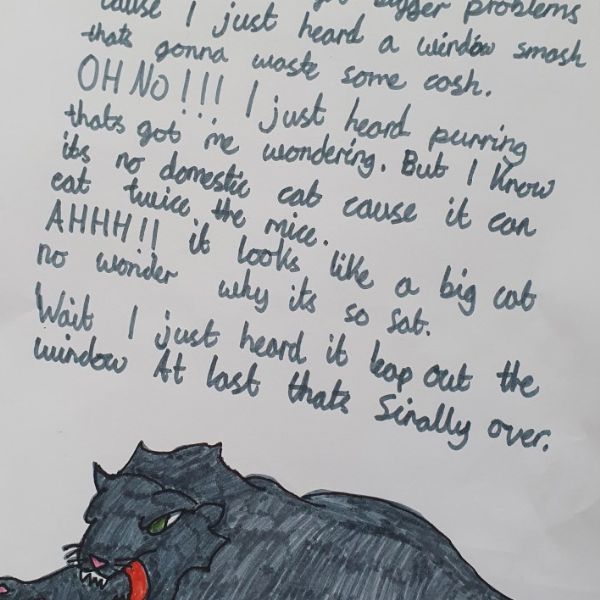 cause I just heard a window smash
thats gonna waste some cash.
OH NO!!! I just heard purring
thats got me wondering. But I know
its no domestic cat cause it can
eat twice the mice.
AHHH!! it looks like a big cat
no wonder why its so fat.
Wait I just heard it leap out the
window At last thats finally over.